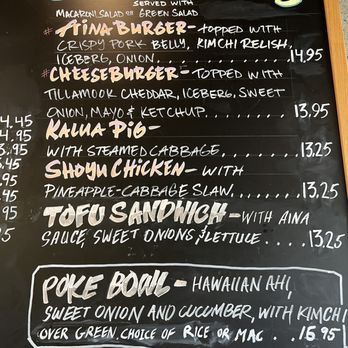 SERVED WITH
MACARONI SALAD OR GREEN SALAD
*AINA BURGER- TOPPED WITH
CRISPY PORK BELLY, KIMCHI RELISH,
ICEBERG, ONION........14.95
*CHEESEBURGER- TOPPED WITH
TILLAMOOK CHEDDAR, ICEBERG, SWEET
ONION, MAYO & KETCHUP........13.95
KALUA PIG-
WITH STEAMED CABBAGE........13.25
SHOYU CHICKEN- WITH
PINEAPPLE-CABBAGE SLAW........13.25
TOFU SANDWICH- WITH AINA
SAUCE, SWEET ONIONS, & LETTUCE.....13.25
POKE BOWL- HAWAIIAN AHI,
SWEET ONION AND CUCUMBER, WITH KIMCHI
OVER GREEN, CHOICE OF RICE OR MAC..15.95